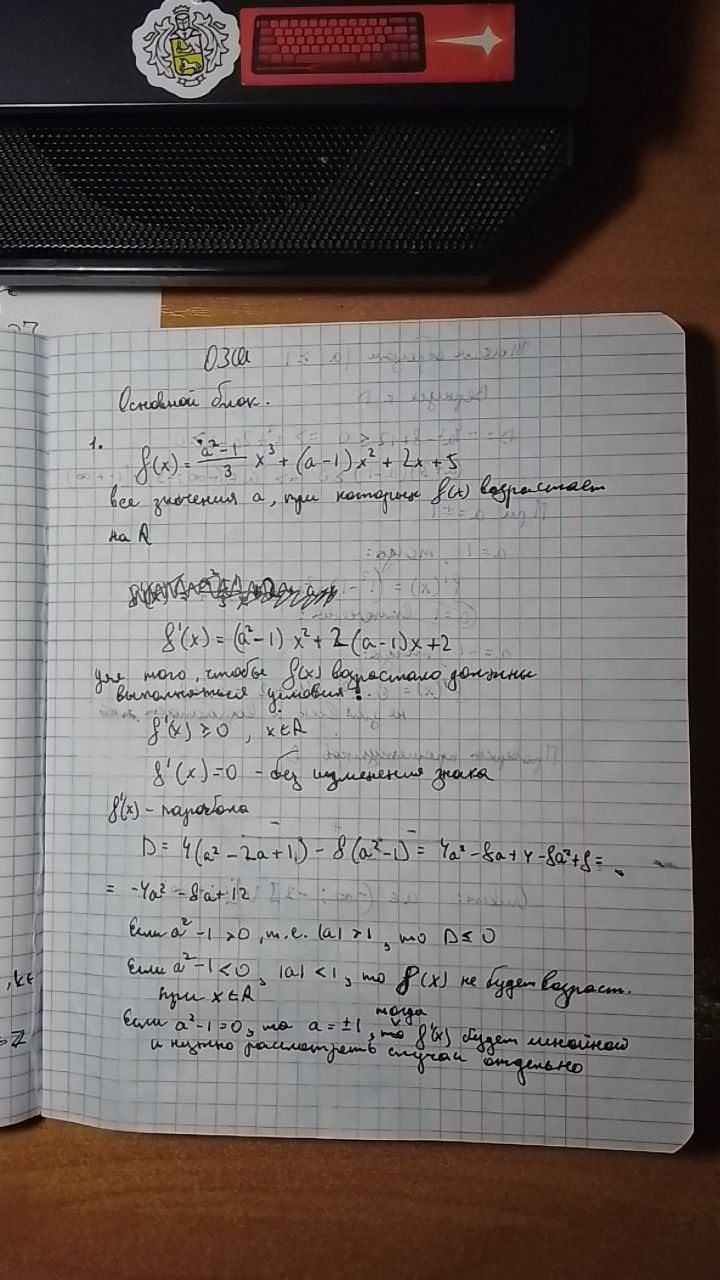 ОЗШ
Основной блок.
1.
f(x) = (a²-1)/3 x³ + (a-1)x² + 2x + 5
все значения a, при которых f(x) возрастает
на R
f'(x) = (a²-1)x² + 2(a-1)x + 2
для того, чтобы f(x) возрастало должны
выполняться условия:
f'(x) ≥ 0, x∈R
f'(x) = 0 - без изменения знака
f'(x) - парабола
D = 4(a² - 2a + 1) - 8(a²-1) = 4a² - 8a + 4 - 8a² + 8 =
= -4a² - 8a + 12
Если a² - 1 > 0, т.е. |a| > 1, то D ≤ 0
Если a² - 1 < 0, |a| < 1, то f(x) не будет возраст.
при x∈R
Если a² - 1 = 0, то a = ±1, тогда f'(x) будет линейной
и нужно рассмотреть случаи отдельно
, k∈